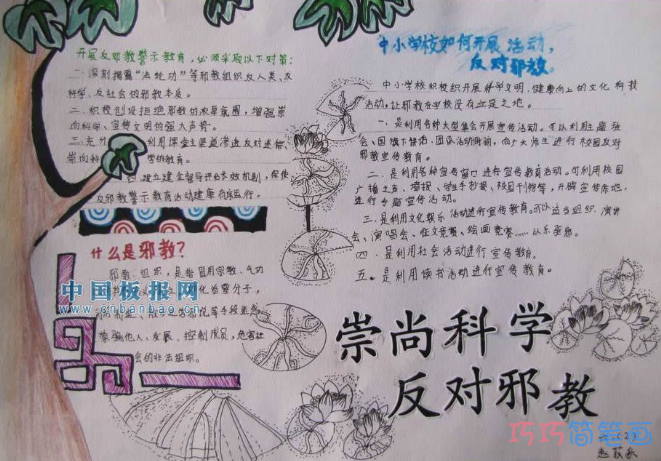 开展反邪教警示教育，必须采取以下对策：
一 深刻揭露“法轮功”等邪教组织反人类、反
科学、反社会的邪教本质。
二 积极创设拒绝邪教的浓厚氛围，增强崇
尚科学、宣传文明的强大声势。
三 充分利用课堂主渠道渗透反对迷信、
崇尚科学教育。
四 建立健全督导评估长效机制，保使
反邪教警示教育活动健康有序运行。
什么是邪教?
邪教组织，是指冒用宗教、气功
化首要分子，
说等手段蛊惑、
蒙骗他人，发展、控制成员，危害社
会的非法组织。
中国板报网
www.cnbanbao.cn
中小学校如何开展活动，
反对邪教。
中小学校积极组织开展科学文明、健康向上的文化科技
活动，让邪教在学校没有立足之地。
一、是利用各种大型集会开展宣传活动。可以利用主题班
会、国旗下讲话、团队活动时间，向广大师生进行校园反对
邪教宣传教育。
二、是利用各种宣传窗口进行宣传教育活动。可利用校园
广播之声、墙报、学生手抄报、校园刊物等，开辟宣传阵地，
进行专题宣传活动。
三、是利用文娱乐活动进行宣传教育。可以适当组织、演讲
会、演唱会、征文竞赛、绘画竞赛……
四、是利用社会活动进行宣传教育。
五、是利用读书活动进行宣传教育。
崇尚科学
反对邪教
巧巧简笔画